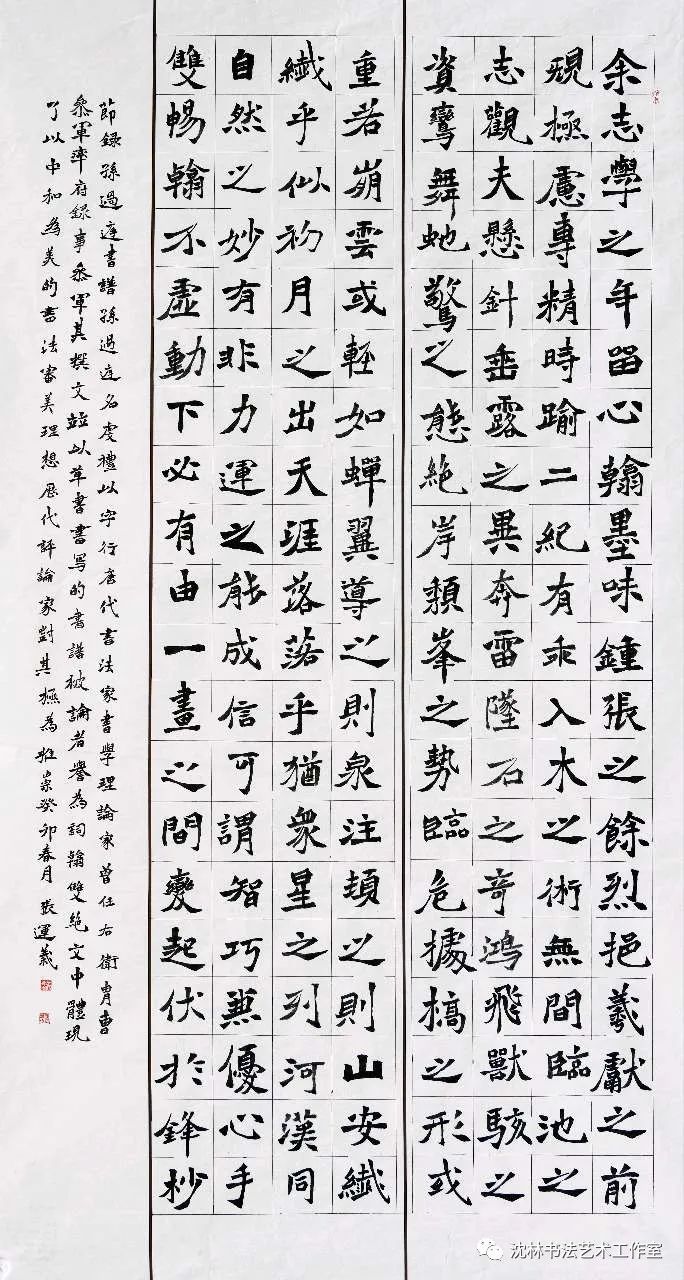 余志學之年留心翰墨味鍾張之餘烈挹羲獻之前
規極慮專精時踰二紀有乖入木之術無間臨池之
志觀夫懸針垂露之異奔雷墜石之奇鴻飛獸駭之
資鸞舞虵驚之態絶岸頹峯之勢臨危據槁之形或
重若崩雲或輕如蟬翼導之則泉注頓之則山安纖
纖乎似初月之出天涯落落乎猶衆星之列河漢同
自然之妙有非力運之能成信可謂智巧兼優心手
雙暢翰不虛動下必有由一畫之間變起伏於鋒杪
節録孫過庭書譜孫過庭名虔禮以字行唐代书法家書學理論家曾任右衛胄曹
叅軍率府録事叅軍其撰文竝以草書書寫的書譜被論者譽為詞翰雙絶文中體現
了以中和為美的書法審美理想歷代評論家對其極為推崇癸卯春月張運義
沈林书法艺术工作室